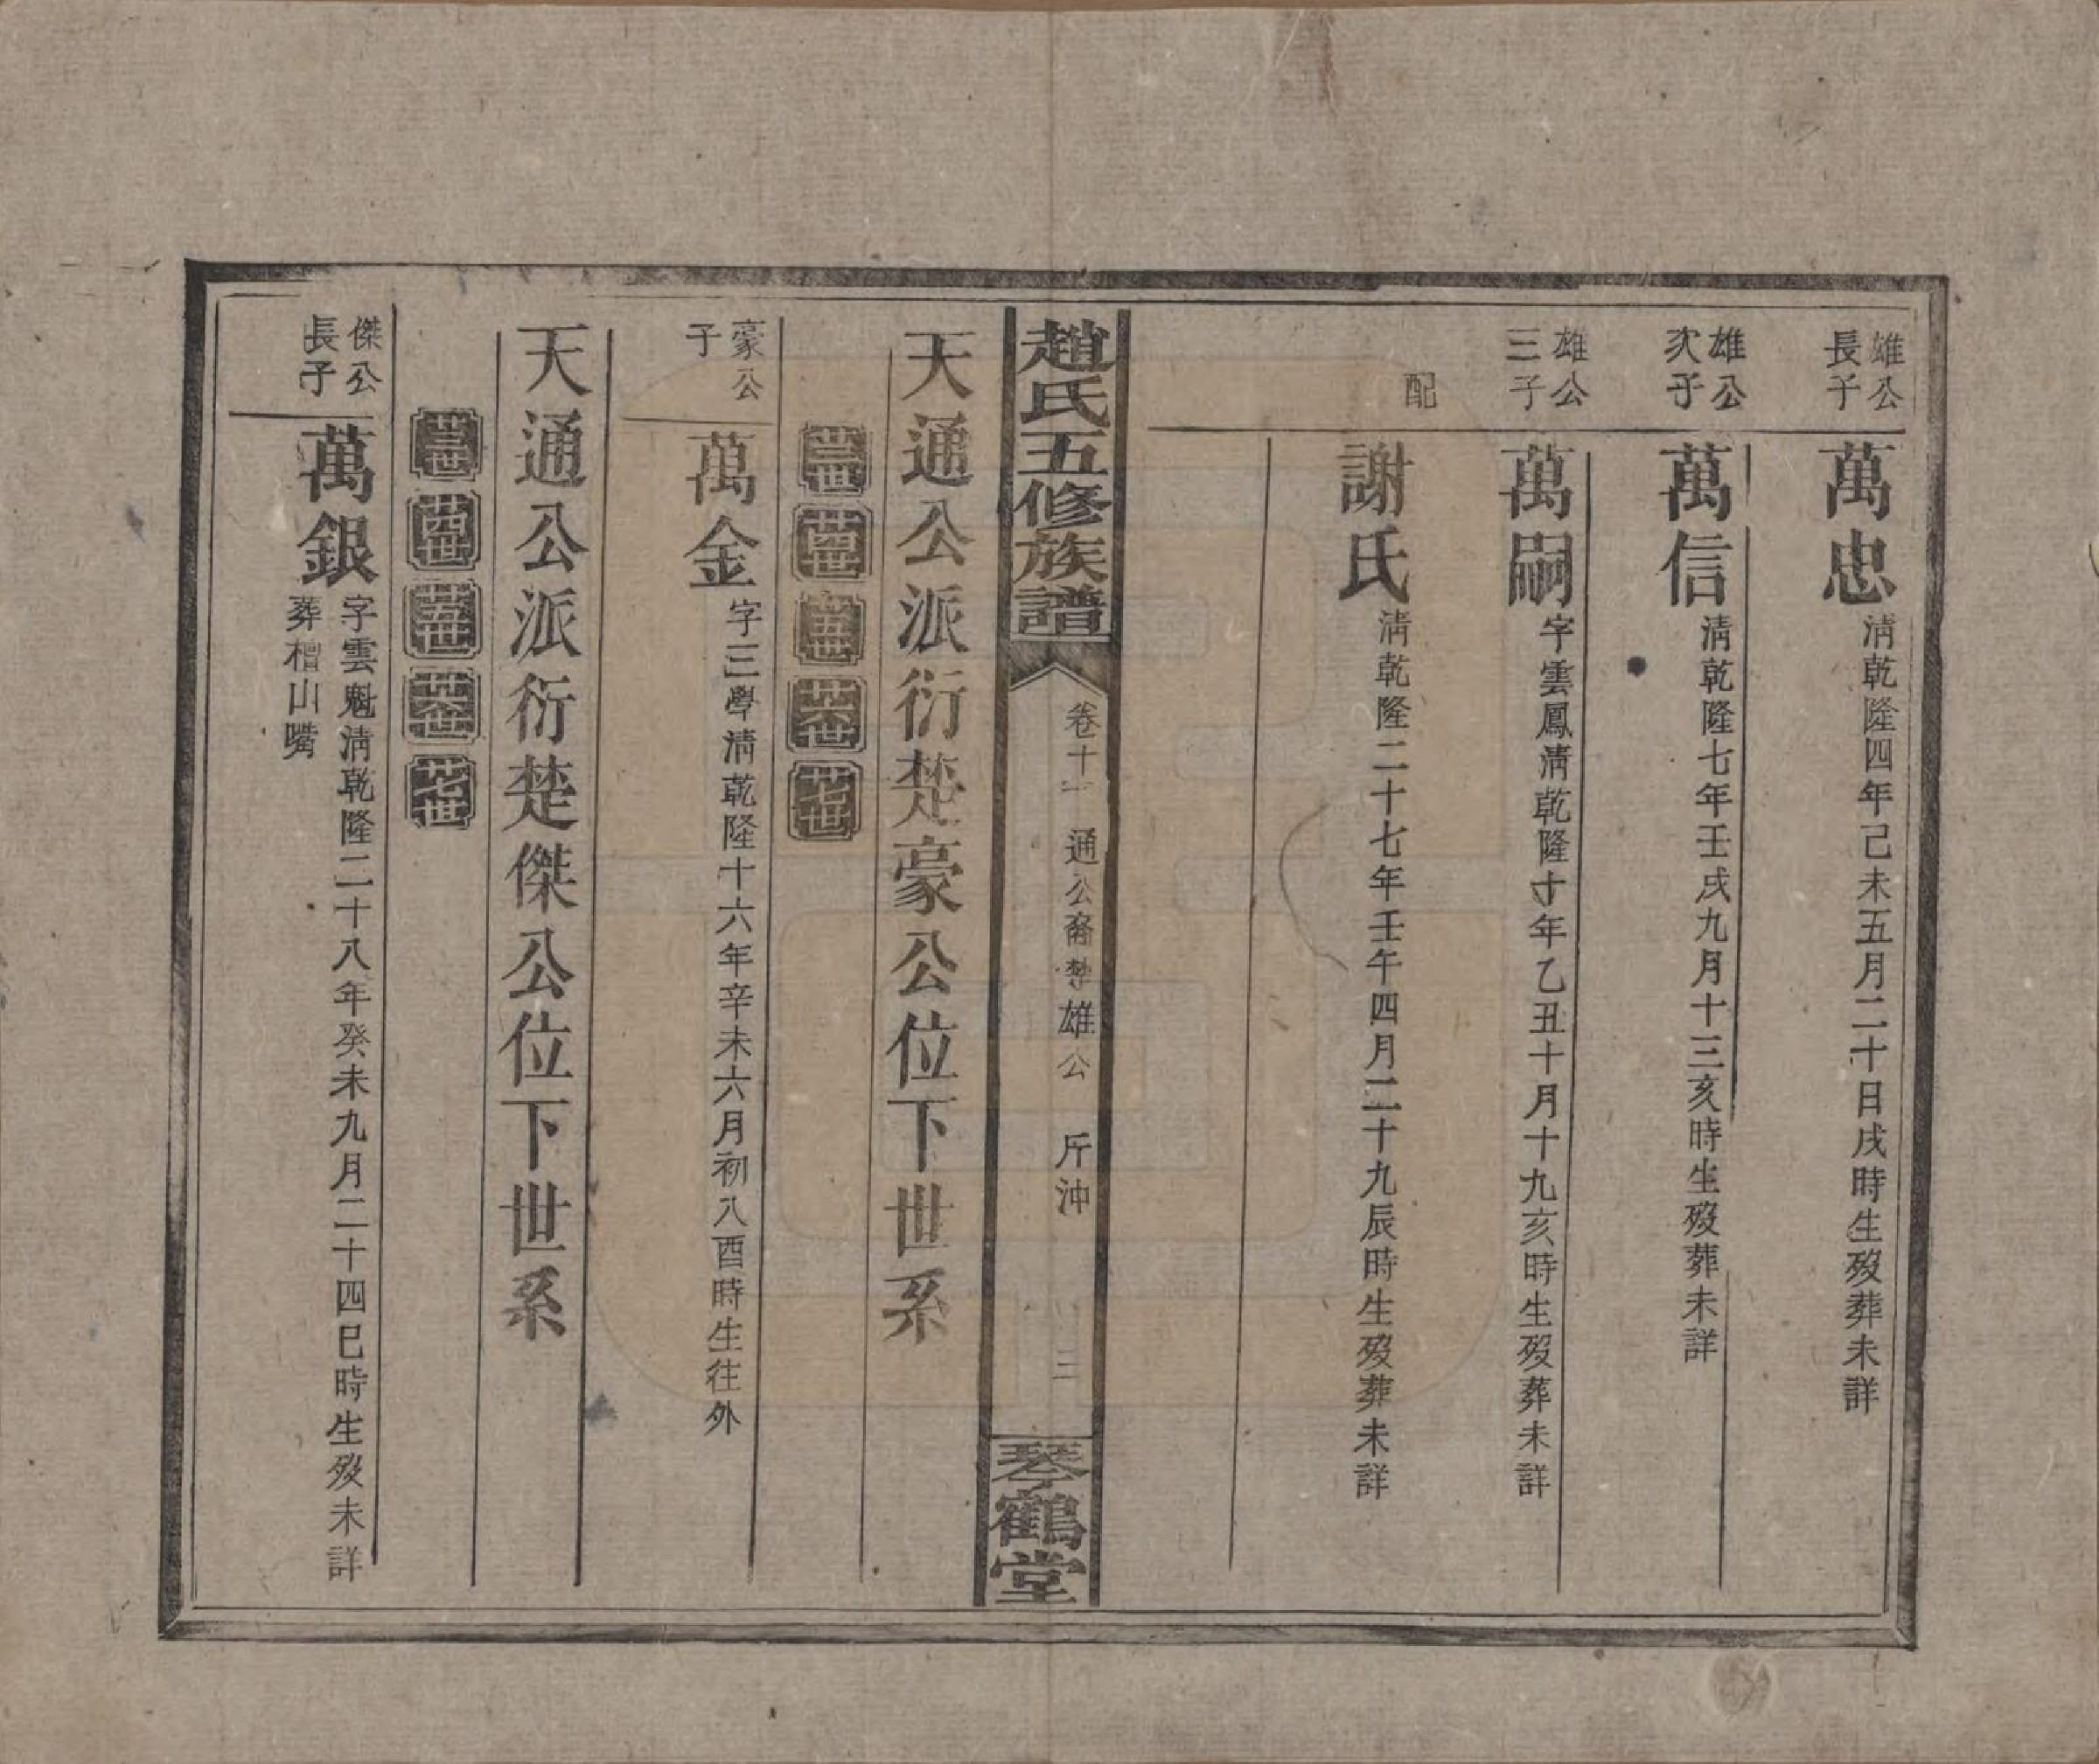 雄公長子
萬忠
清乾隆四年己未五月二十日戌時生歿葬未詳
雄公次子
萬信
清乾隆七年壬戌九月十三亥時生歿葬未詳
雄公三子
萬嗣
字雲鳳清乾隆十年乙丑十月十九亥時生歿葬未詳
配
謝氏
清乾隆二十七年壬午四月二十九辰時生歿葬未詳
趙氏五修族譜
卷十一 通公裔楚雄公 斤沖 三
琴鶴堂
天通公派衍楚豪公位下世系
廿三世 廿四世 廿五世 廿六世 廿七世
豪公子
萬金
字三學清乾隆十六年辛未六月初八酉時生往外
天通公派衍楚傑公位下世系
廿三世 廿四世 廿五世 廿六世 廿七世
傑公長子
萬銀
字雲魁清乾隆二十八年癸未九月二十四巳時生歿未詳
葬檀山嘴